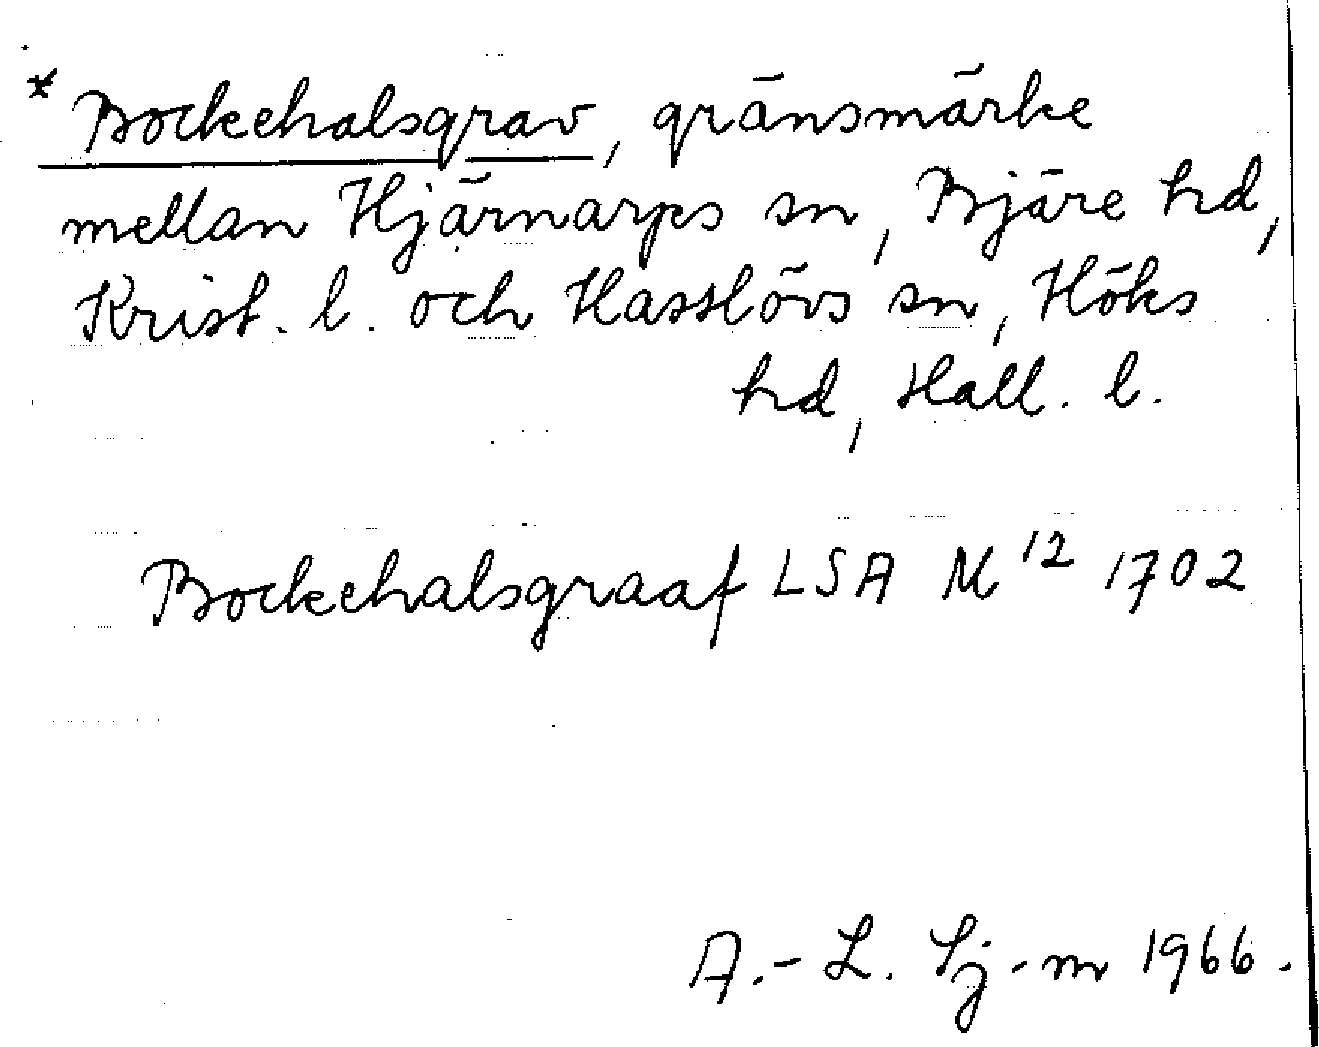 * Bockehalsgrav, gränsmärke
mellan Hjärnarps sn, Bjäre hd,
Krist. l. och Hasslövs sn, Höks
hd, Hall. l.
Bockehalsgraaf LSA M 12 1702
A.-L. Sj-m 1966.